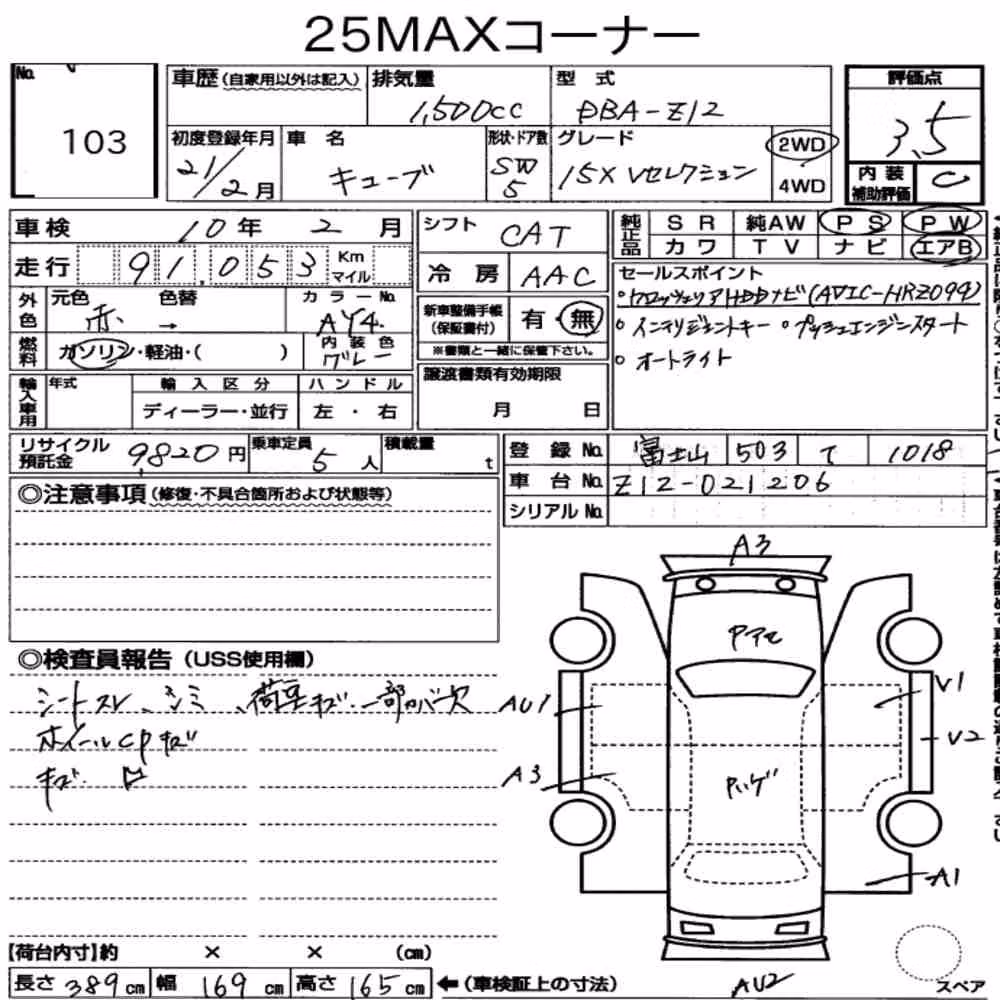 25MAXコーナー
No.
103
車歴(自家用以外は記入)
排気量
1,500cc
型式
DBA-Z12
評価点
3.5
初度登録年月
21/2月
車名
キューブ
形状・ドア数
SW
5
グレード
15X Vセレクション
2WD
4WD
内装
補助評価
C
車検 10年 2月
走行 91,053 Km
マイル
シフト CAT
冷房 AAC
純正品
SR 純AW PS PW
カワ TV ナビ エアB
外色
元色 色替 カラーNo.
赤 → AY4
燃料
ガソリン・軽油・( )
内装色
グレー
新車整備手帳
(保証書付)
有・無
※書類と一緒に保管下さい。
セールスポイント
・カロッツェリアHDDナビ(AVIC-HRZ099)
○インテリジェントキー ○プッシュエンジンスタート
○オートライト
輸入車用
年式
輸入区分
ハンドル
ディーラー・並行
左・右
譲渡書類有効期限
月 日
リサイクル
預託金
9820円
乗車定員
5人
積載量
t
登録No. 富士山 503 て 1018
車台No. Z12-021206
シリアルNo.
◎注意事項(修復・不具合箇所および状態等)
◎検査員報告(USS使用欄)
シートスレ、シミ、荷室キズ・一部カバー欠
ホイールCPキズ
キズ・凹
A3
Pアセ
AU1
V1
V2
A3
Pハゲ
A1
AU2
スペア
【荷台内寸】約 × × (cm)
長さ 389cm 幅 169cm 高さ 165cm ←(車検証上の寸法)